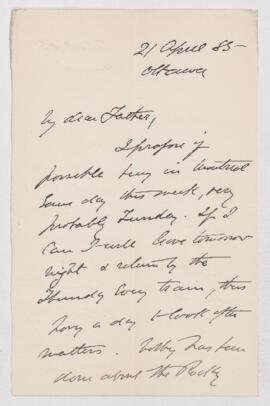 21 April 85
Ottawa
My dear Father,
I propose if
possible being in Montreal
some day this week, very
probably Tuesday. If I
can I will leave tomorrow
night & return by the
Thursday train, thus
having a day to look after
matters. has been
done about the Rocky